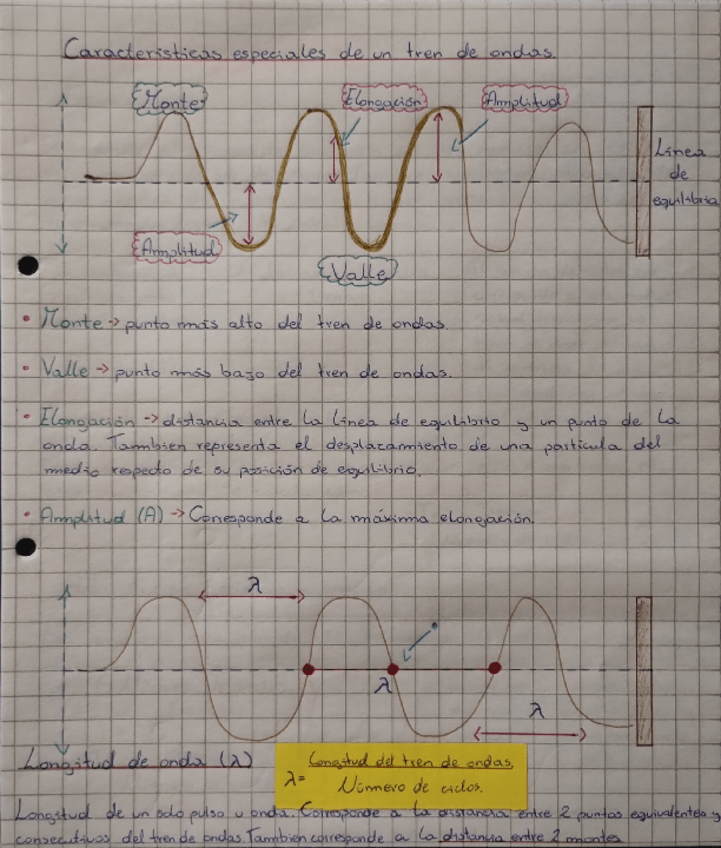 Características especiales de un tren de ondas.
Monte
Elongación
Amplitud
Línea
de
equilibrio
Amplitud
Valle
• Monte → punto más alto del tren de ondas.
• Valle → punto más bajo del tren de ondas.
• Elongación → distancia entre la línea de equilibrio y un punto de la
onda. Tambien representa el desplazamiento de una partícula del
medio respecto de su posición de equilibrio.
• Amplitud (A) → Corresponde a la máxima elongación.
λ
λ
λ
Longitud de onda (λ)
λ= Longitud del tren de ondas.
Número de ciclos.
Longitud de un solo pulso u onda. Corresponde a la distancia entre 2 puntos equivalentes y
consecutivos del tren de ondas. Tambien corresponde a la distancia entre 2 montes